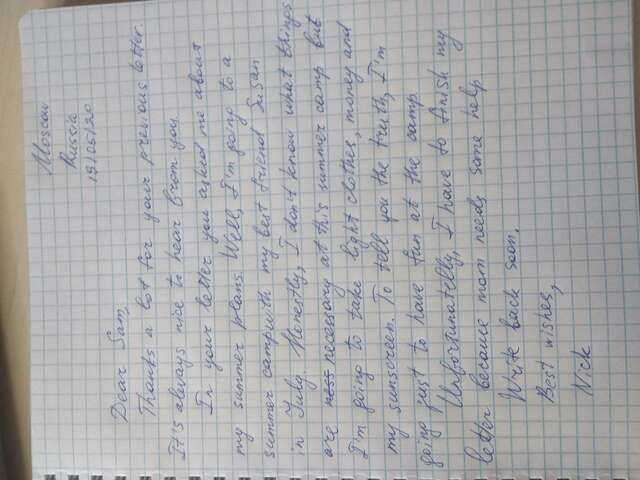 Moscow
Russia
19/05/20
Dear Sam,
Thanks a lot for your previous letter.
It's always nice to hear from you.
In your letter you asked me about
my summer plans. Well, I'm going to a
summer camp with my best friend Susan
in July. Honestly, I don't know what things
are necessary at this summer camp but
I'm going to take light clothes, money and
my sunscreen. To tell you the truth, I'm
going just to have fun at the camp.
Unfortunatelly, I have to finish my
letter because mom needs some help.
Write back soon.
Best wishes,
Nick